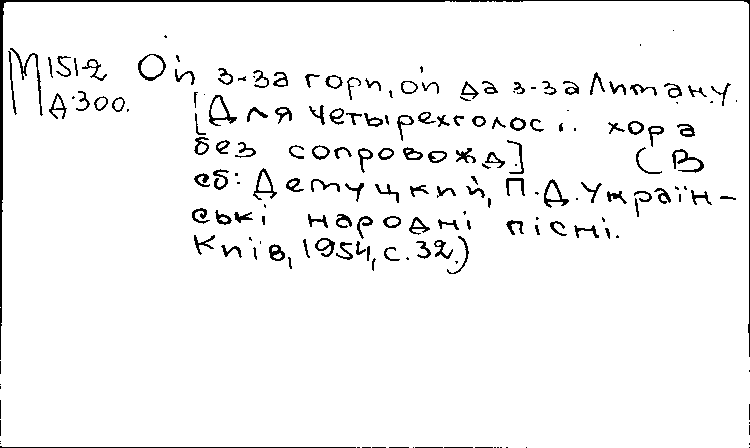 М151-2 Ой з-за гори, ой да з-за Лиману.
Д300. [Для четырехголос.. хора
без сопровожд.] (В
сб: Демуцкий, П.Д. Україн-
ські народні пісні.
Київ, 1954, с. 32.)